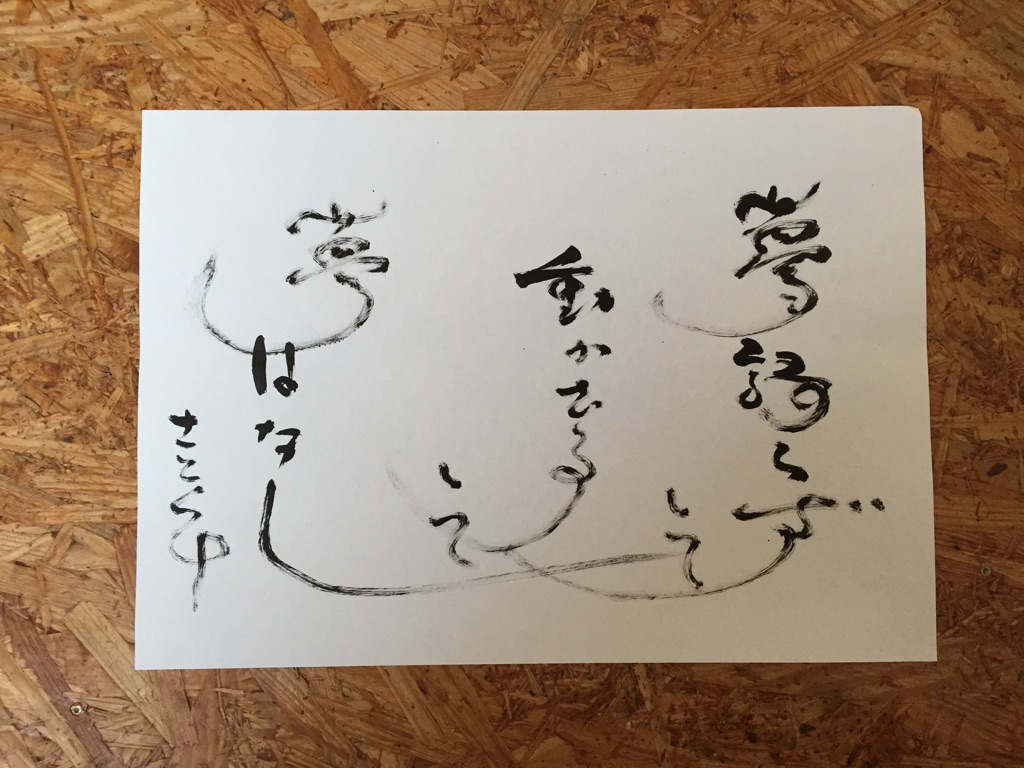 夢語らずして
動かさずして
夢はなし